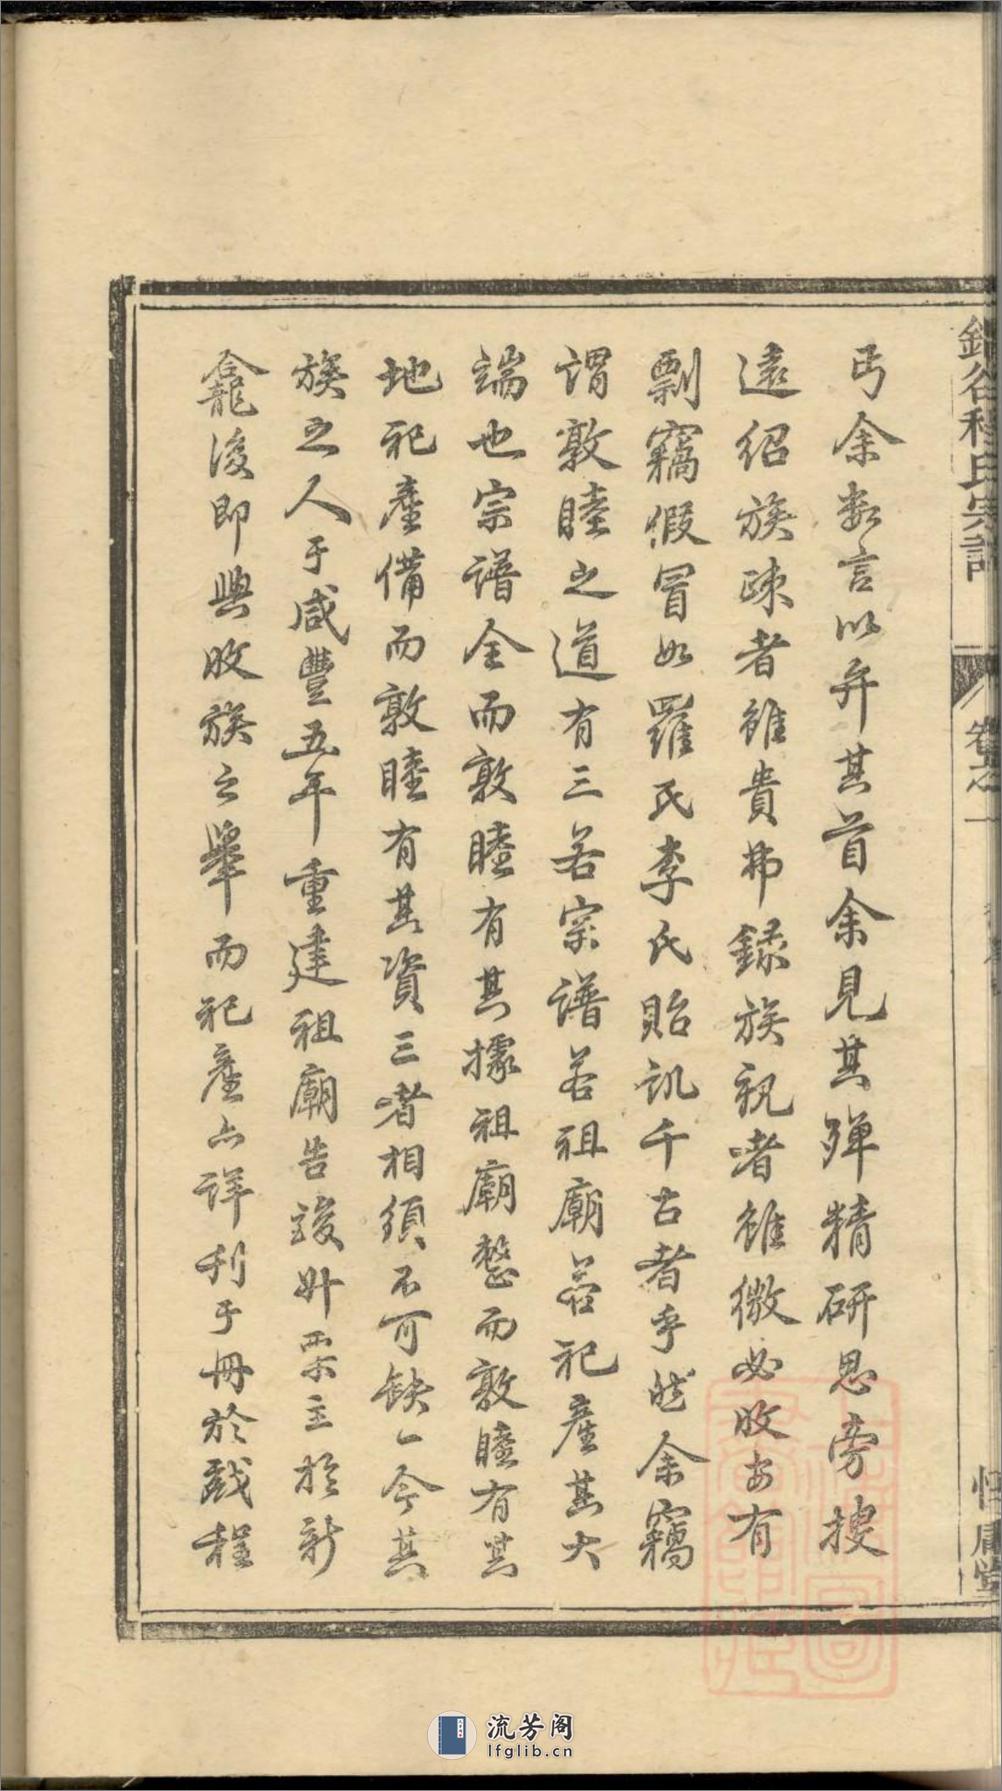 程氏宗譜
卷之一
丐余数言以弁其首余見其殫精研思旁搜
遠紹族疎者雖貴弗録族親者雖微必收安有
剽竊假冒如羅氏李氏貽訊千古者乎然余竊
謂敦睦之道有三若宗譜若祖廟若祀産其大
端也宗譜全而敦睦有其據祖廟整而敦睦有其
地祀産備而敦睦有其資三者相須不可缺一今其
族之人于咸豐五年重建祖廟告竣升栗主於新
龕後即興收族之舉而祀産亦詳刊于冊於戲程
流芳阁
lfglib.cn